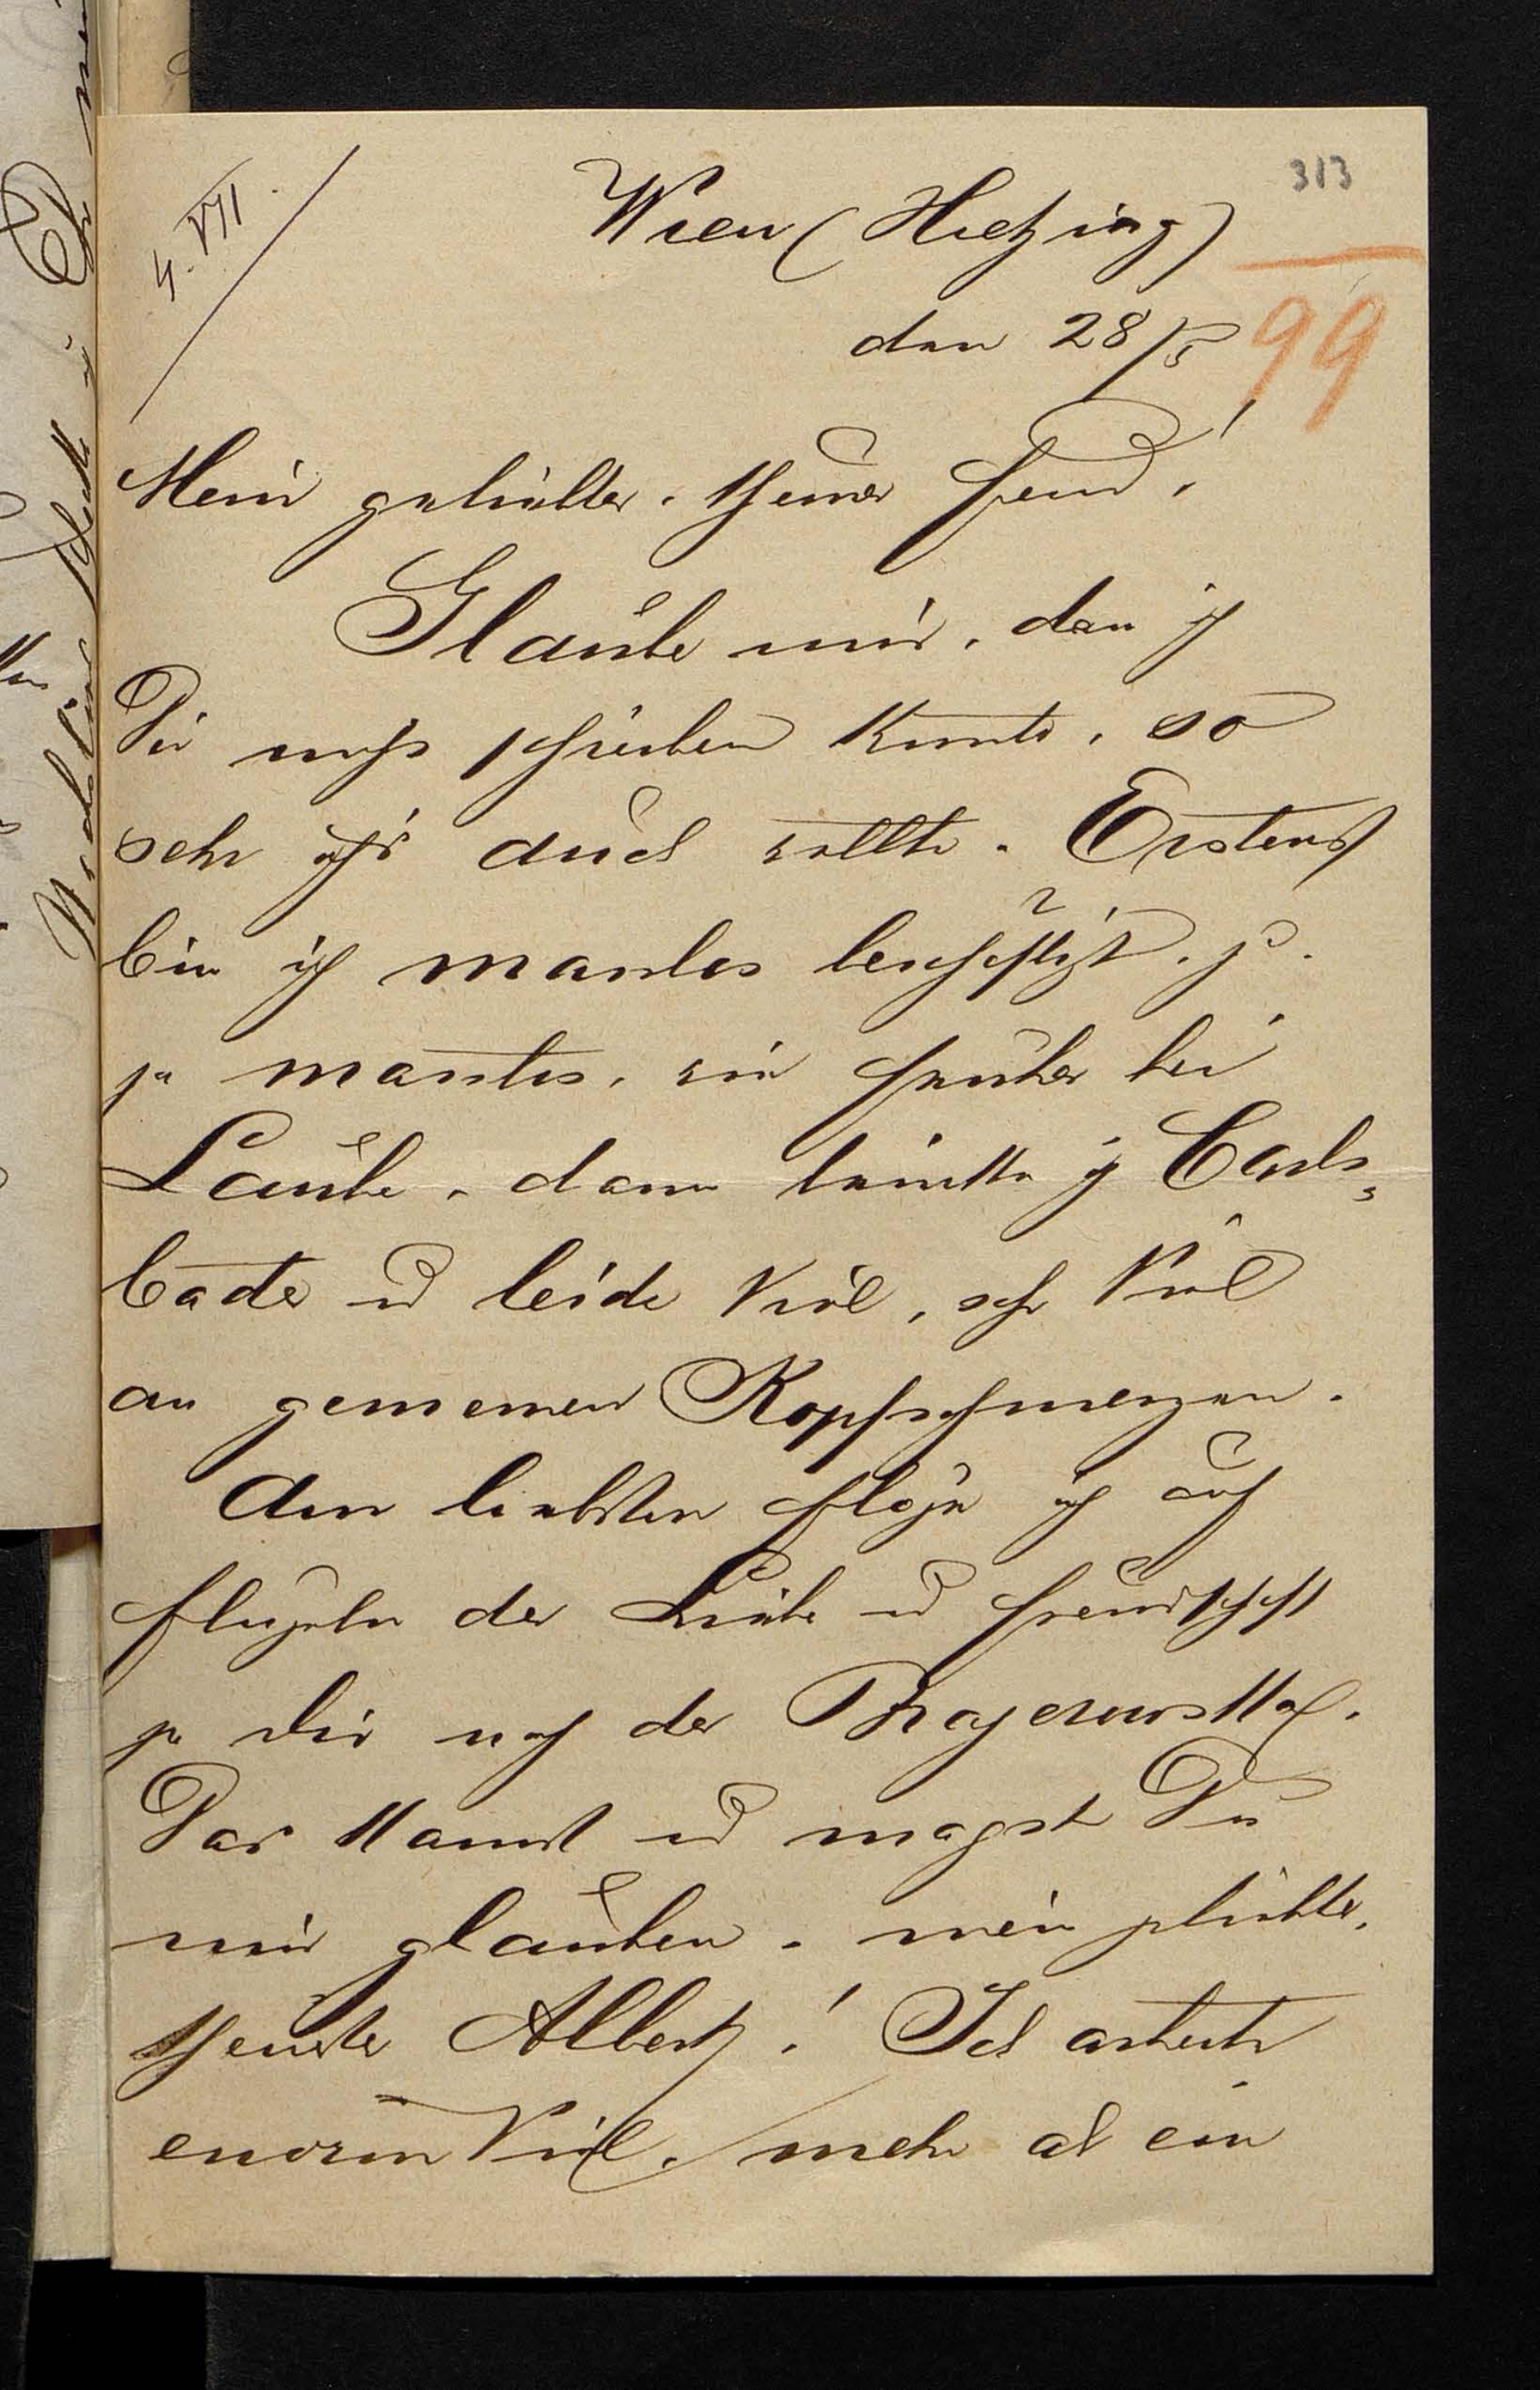 313
4. VII
Wien (Hietzing)
den 28/5
99
Mein geliebter, theurer Freund!
Glaube mir, daß ich
Dir nicht schreiben konnte, so
sehr ich's auch wollte. Erstens
bin ich maßlos beschäftigt, ja
so maßlos, wie früher bei
Laube, dann trinke ich Carls-
bader und leide viel, sehr viel
an gemeinen Kopfschmerzen.
Am liebsten flöge ich auf
Flügeln der Liebe und Freundschaft
zu Dir nach der
Das kannst und magst Du
mir glauben, mein geliebter,
theurer Albert! Ich arbeite
enorm viel, mehr als ein